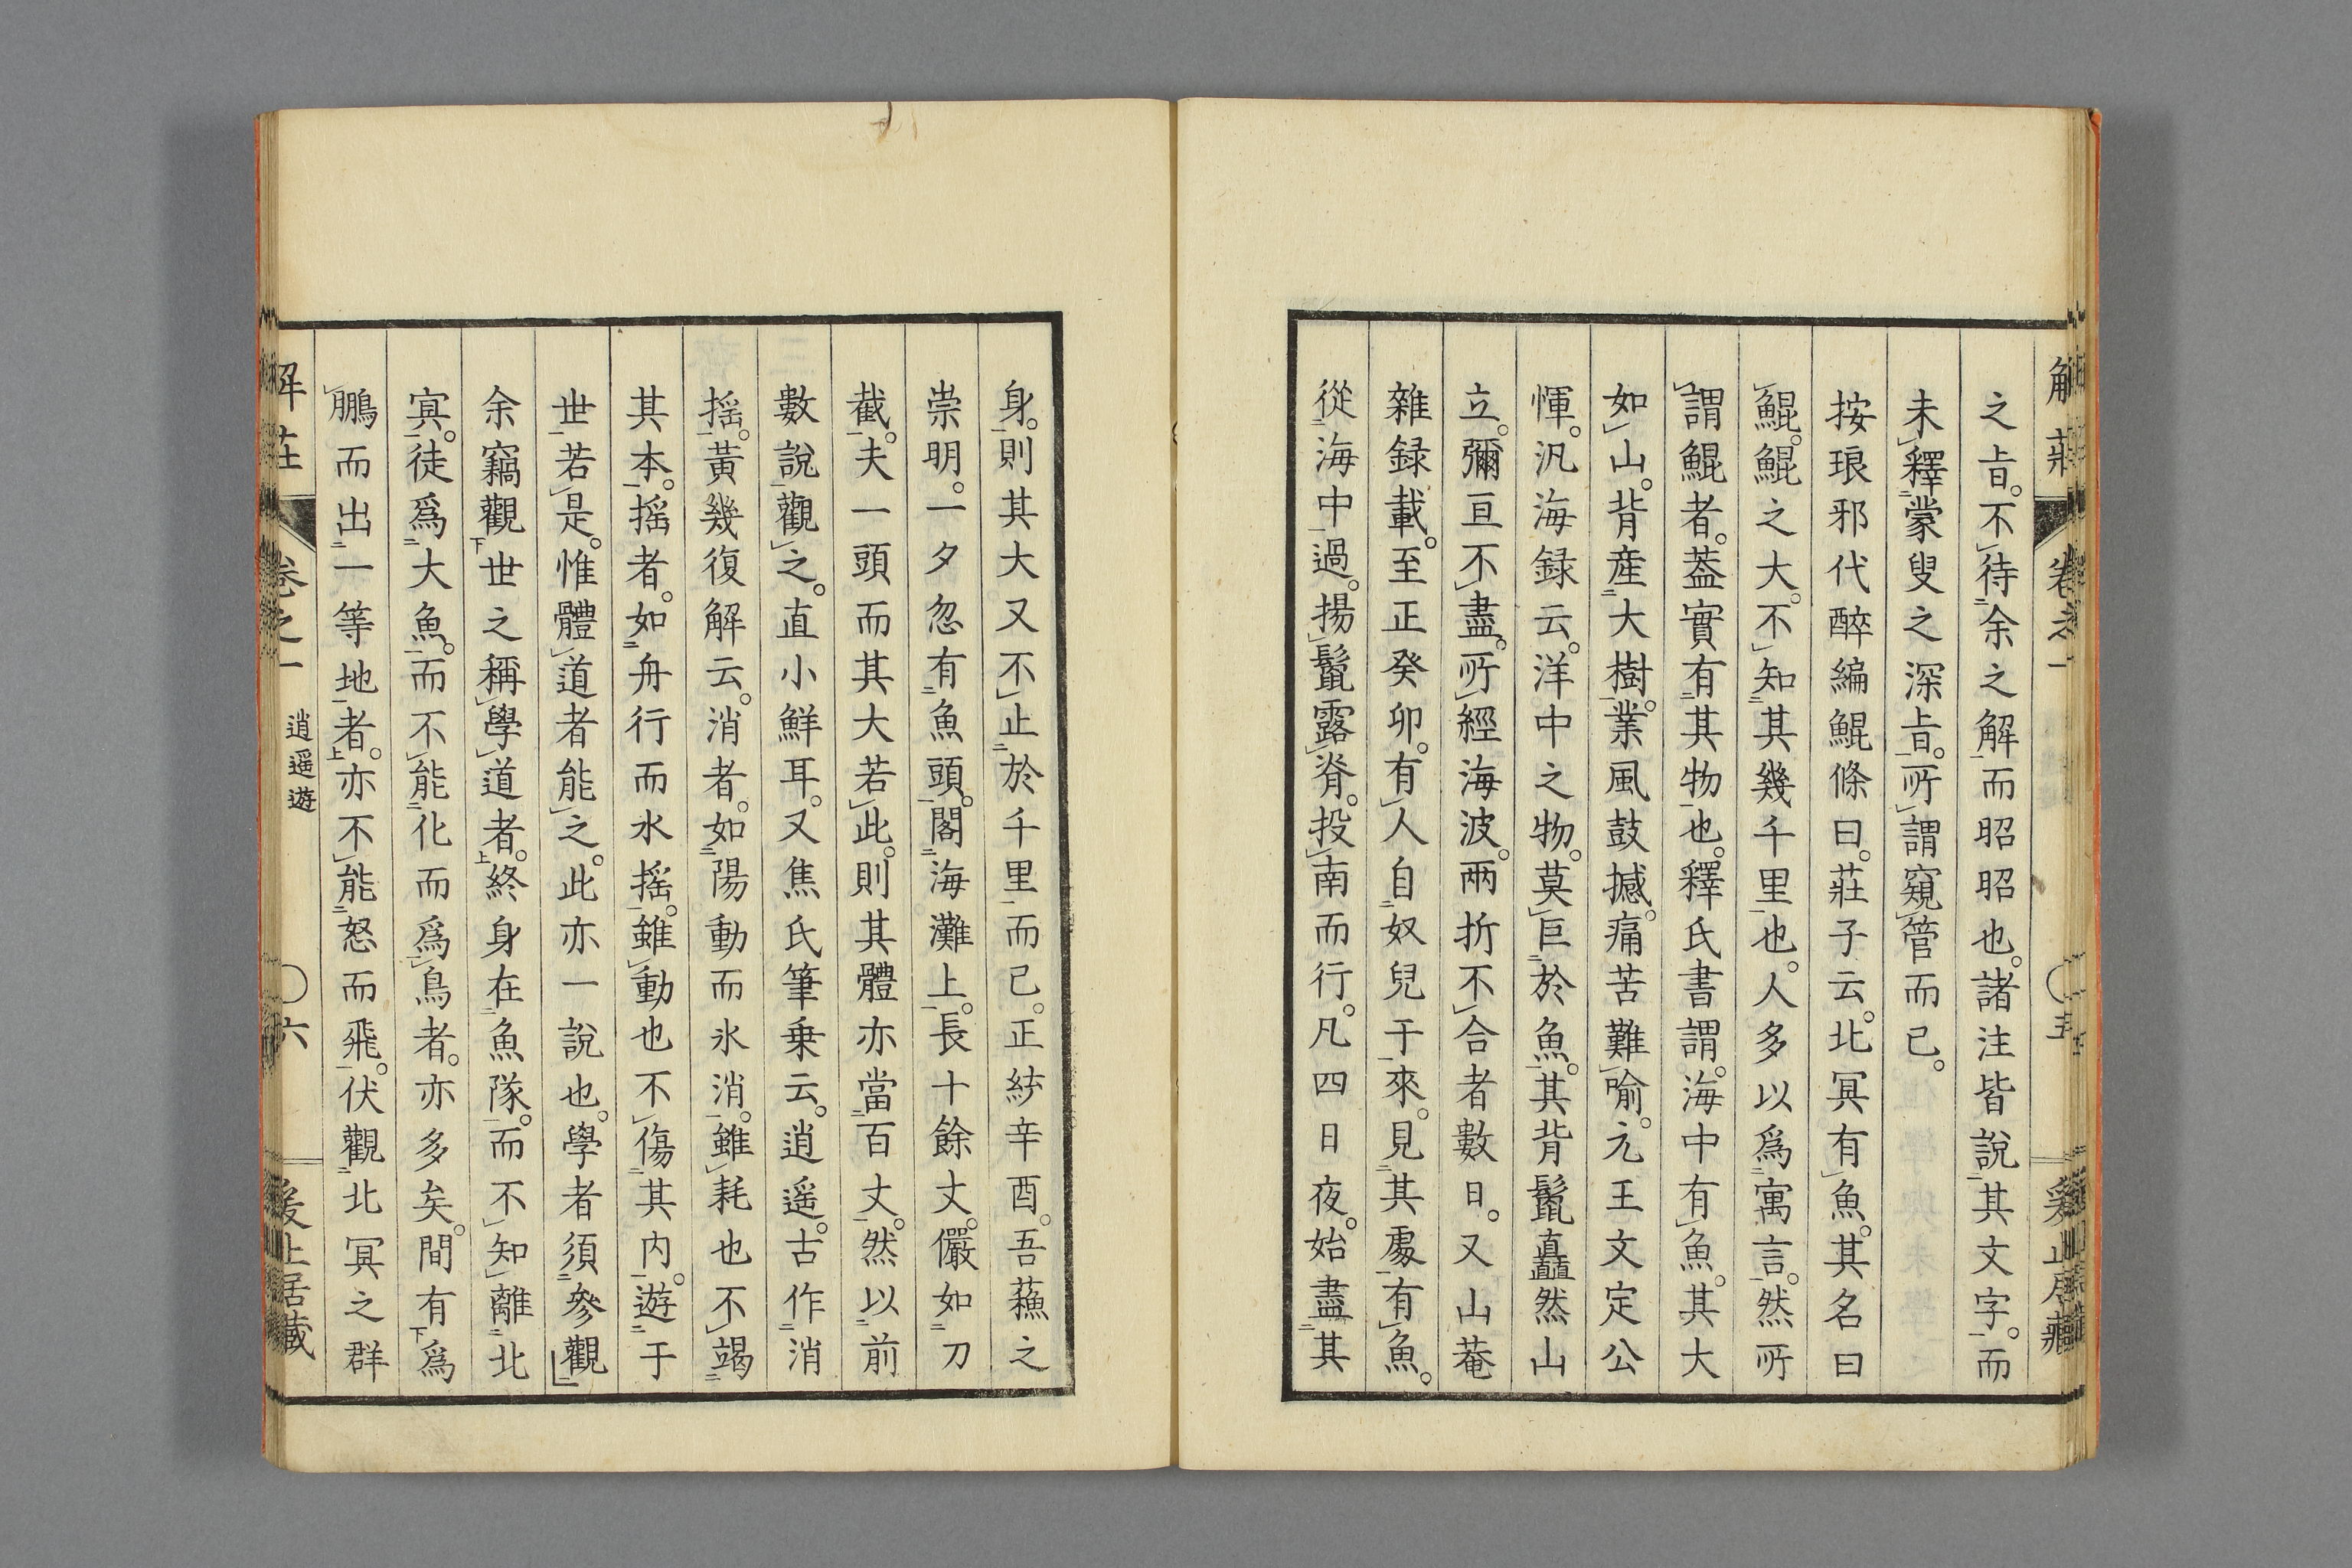 解莊 卷之一 ○五 爰止居藏
之㫖。不待余之解而昭昭也。諸注皆說其文字。而
未釋蒙叟之深㫖。所謂窺管而已。
按琅邪代醉編鯤條曰。莊子云。北冥有魚。其名曰
鯤。鯤之大。不知其幾千里也。人多以爲寓言。然所
謂鯤者。葢實有其物也。釋氏書謂。海中有魚。其大
如山。背産大樹。業風鼓撼。痛苦難喻。元王文定公
惲。汎海録云。洋中之物。莫巨於魚。其背鬣矗然山
立。彌亘不盡。所經海波。兩折不合者數日。又山菴
雜録載。至正癸卯。有人自奴兒于來。見其處有魚。
從海中過。揚鬣露脊。投南而行。凡四日夜。始盡其
身。則其大又不止於千里而已。正統辛酉。吾蘓之
崇明。一夕忽有魚頭。閣海灘上。長十餘丈。儼如刀
截。夫一頭而其大若此。則其體亦當百丈。然以前
數說觀之。直小鮮耳。又焦氏筆乗云。逍遥。古作消
揺。黃幾復解云。消者。如陽動而氷消。雖耗也不竭
其本。揺者。如舟行而水揺。雖動也不傷其内。遊于
世若是。惟體道者能之。此亦一說也。學者須參觀
余竊觀世之稱學道者。終身在魚隊。而不知離北
㝠。徒爲大魚。而不能化而爲鳥者。亦多矣。間有爲
鵬而出一等地者。亦不能怒而飛。伏觀北冥之群
解莊 卷之一 逍遥遊 ○六 爰止居藏